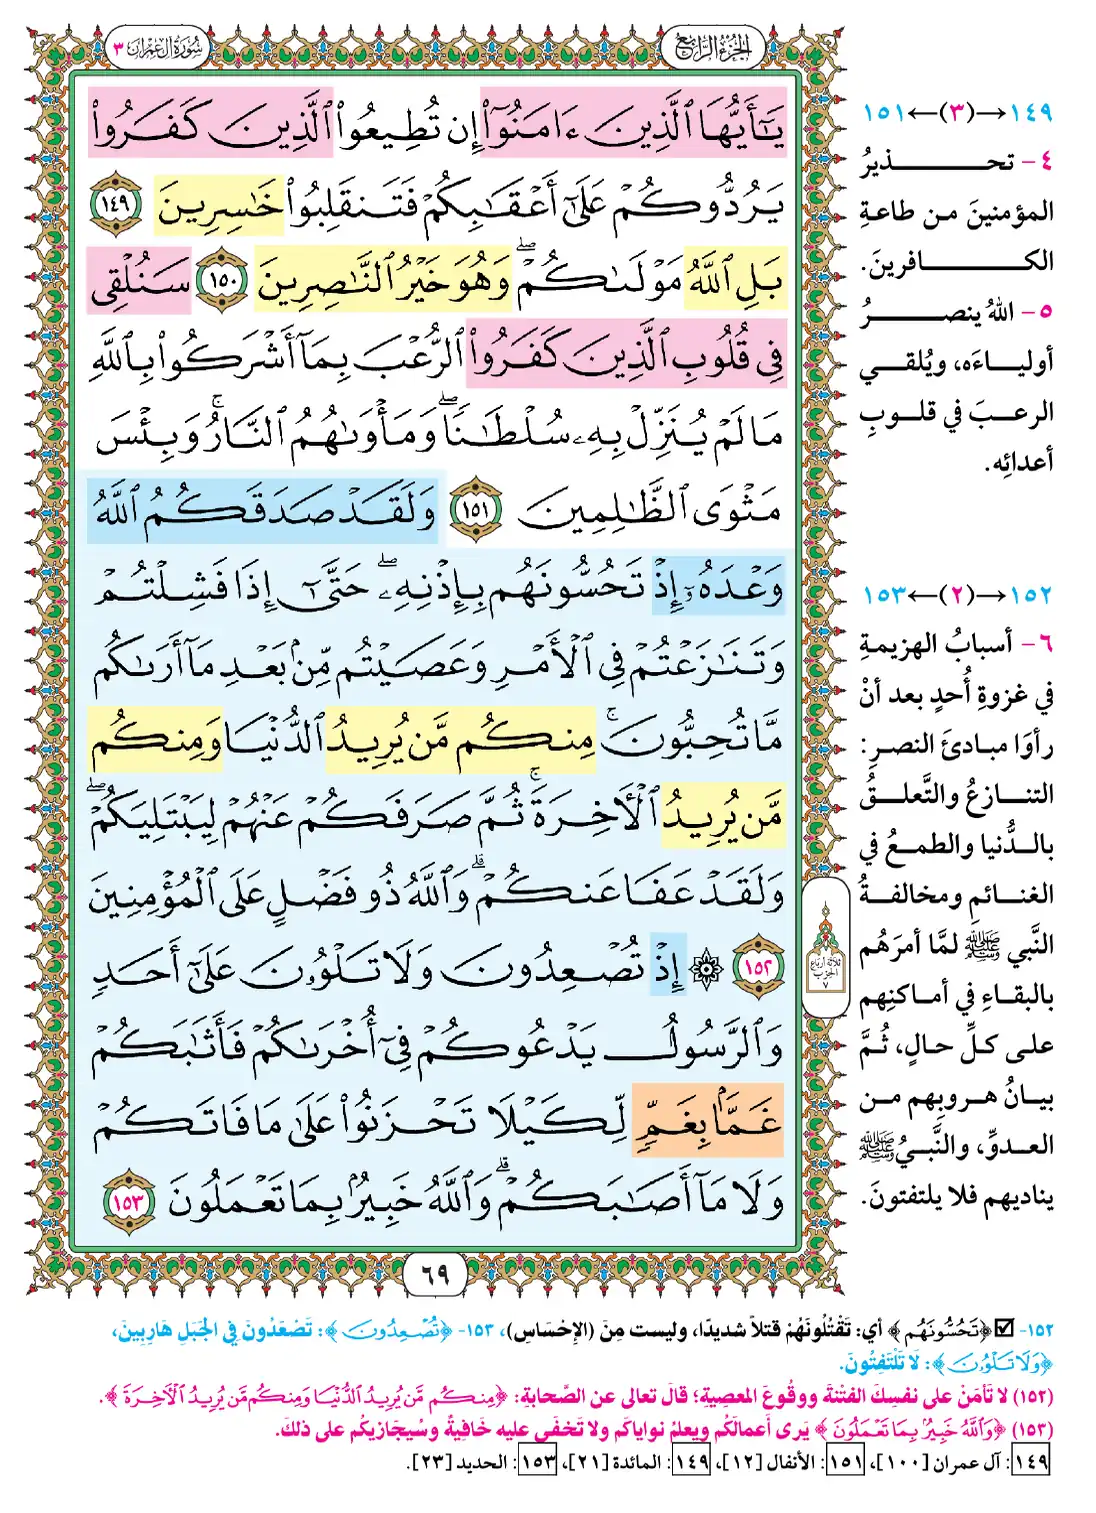 الجزء الرابع
سورة آل عمران ٣
يَٰٓأَيُّهَا ٱلَّذِينَ ءَامَنُوٓا۟ إِن تُطِيعُوا۟ ٱلَّذِينَ كَفَرُوا۟
يَرُدُّوكُمْ عَلَىٰٓ أَعْقَٰبِكُمْ فَتَنقَلِبُوا۟ خَٰسِرِينَ ١٤٩
بَلِ ٱللَّهُ مَوْلَىٰكُمْ ۖ وَهُوَ خَيْرُ ٱلنَّٰصِرِينَ ١٥٠ سَنُلْقِى
فِى قُلُوبِ ٱلَّذِينَ كَفَرُوا۟ ٱلرُّعْبَ بِمَآ أَشْرَكُوا۟ بِٱللَّهِ
مَا لَمْ يُنَزِّلْ بِهِۦ سُلْطَٰنًا ۖ وَمَأْوَىٰهُمُ ٱلنَّارُ ۚ وَبِئْسَ
مَثْوَى ٱلظَّٰلِمِينَ ١٥١ وَلَقَدْ صَدَقَكُمُ ٱللَّهُ
وَعْدَهُۥٓ إِذْ تَحُسُّونَهُم بِإِذْنِهِۦ ۖ حَتَّىٰٓ إِذَا فَشِلْتُمْ
وَتَنَٰزَعْتُمْ فِى ٱلْأَمْرِ وَعَصَيْتُم مِّنۢ بَعْدِ مَآ أَرَىٰكُم
مَّا تُحِبُّونَ ۚ مِنكُم مَّن يُرِيدُ ٱلدُّنْيَا وَمِنكُم
مَّن يُرِيدُ ٱلْءَاخِرَةَ ۚ ثُمَّ صَرَفَكُمْ عَنْهُمْ لِيَبْتَلِيَكُمْ ۖ
وَلَقَدْ عَفَا عَنكُمْ ۗ وَٱللَّهُ ذُو فَضْلٍ عَلَى ٱلْمُؤْمِنِينَ
١٥٢ ۞ إِذْ تُصْعِدُونَ وَلَا تَلْوُۥنَ عَلَىٰٓ أَحَدٍ
وَٱلرَّسُولُ يَدْعُوكُمْ فِىٓ أُخْرَىٰكُمْ فَأَثَٰبَكُمْ
غَمًّۢا بِغَمٍّ لِّكَيْلَا تَحْزَنُوا۟ عَلَىٰ مَا فَاتَكُمْ
وَلَا مَآ أَصَٰبَكُمْ ۗ وَٱللَّهُ خَبِيرٌۢ بِمَا تَعْمَلُونَ ١٥٣
٦٩
١٤٩→(٣)←١٥١
٤- تحـــذيرُ
المؤمنينَ من طاعةِ
الكـــافرينَ.
٥- اللهُ ينصـــرُ
أوليـاءَه، ويُلقـي
الرعـبَ في قلـوبِ
أعدائِه.
١٥٢→(٢)←١٥٣
٦- أسبابُ الهزيمةِ
في غزوةِ أُحدٍ بعد أنْ
رأوَا مبادئَ النصرِ:
التنازعُ والتَّعلقُ
بالدُّنيا والطمعُ في
الغنائمِ ومخالفةُ
النَّبي ﷺ لمَّا أمرَهُم
بالبقاءِ في أماكنِهم
على كلِّ حالٍ، ثُمَّ
بيانُ هروبِهم من
العدوِّ، والنَّبيُ ﷺ
يناديهم فلا يلتفتونَ.
ثلاثة أرباع
الحزب
٧
١٥٢- ☑ ﴿تَحُسُّونَهُم﴾ أي: تَقْتُلُونَهُمْ قتلاً شديدًا، وليست مِنَ (الإحْسَاسِ)، ١٥٣- ﴿تُصْعِدُونَ﴾: تَصْعَدُونَ فِي الجَبَلِ هَارِبِينَ،
﴿وَلَا تَلْوُۥنَ﴾: لَا تَلْتَفِتُونَ.
(١٥٢) لا تأمَنْ على نفسِكَ الفتْنةَ ووقُوعَ المعصِيةِ؛ قالَ تعالى عن الصَّحابةِ: ﴿مِنكُم مَّن يُرِيدُ ٱلدُّنْيَا وَمِنكُم مَّن يُرِيدُ ٱلْءَاخِرَةَ﴾.
(١٥٣) ﴿وَٱللَّهُ خَبِيرٌۢ بِمَا تَعْمَلُونَ﴾ يَرى أعمالَكُم ويعلمُ نواياكُم ولا تَخفَى عليه خَافِيةٌ وسُيجَازيكُم على ذلكَ.
١٤٩: آل عمران [١٠٠]، ١٥١: الأنفال [١٢]، ١٤٩: المائدة [٢١]، ١٥٣: الحديد [٢٣].